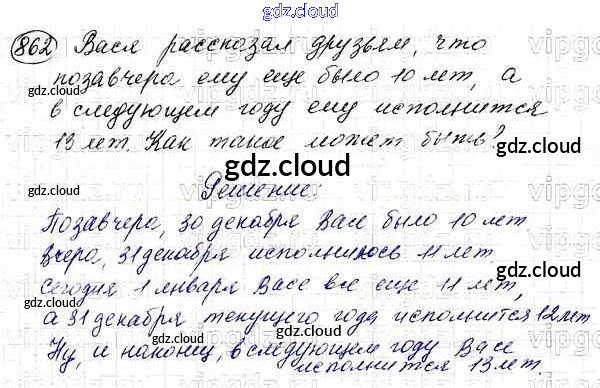 gdz.cloud
862 Вася рассказал друзьям, что
позавчера ему еще было 10 лет, а
в следующем году ему исполнится
13 лет. Как такое может быть?
gdz.cloud
Решение:
Позавчера, 30 декабря Васе было 10 лет.
Вчера, 31 декабря исполнилось 11 лет.
Сегодня 1 января Васе все еще 11 лет,
а 31 декабря текущего года исполнится 12 лет
Ну, и наконец, в следующем году Васе
исполнится 13 лет.